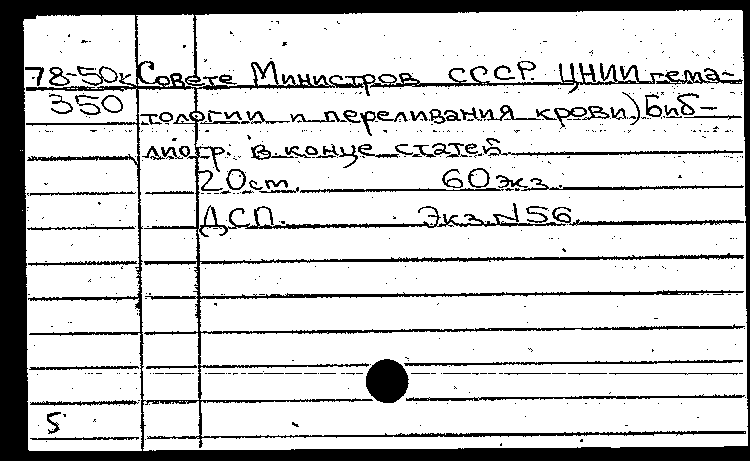 78-50к Совете Министров СССР. ЦНИИ гема-
350 тологии и переливания крови) Биб-
лиогр. в конце статей
20 ст. 60 экз.
ДСП. Экз. N 56.
5